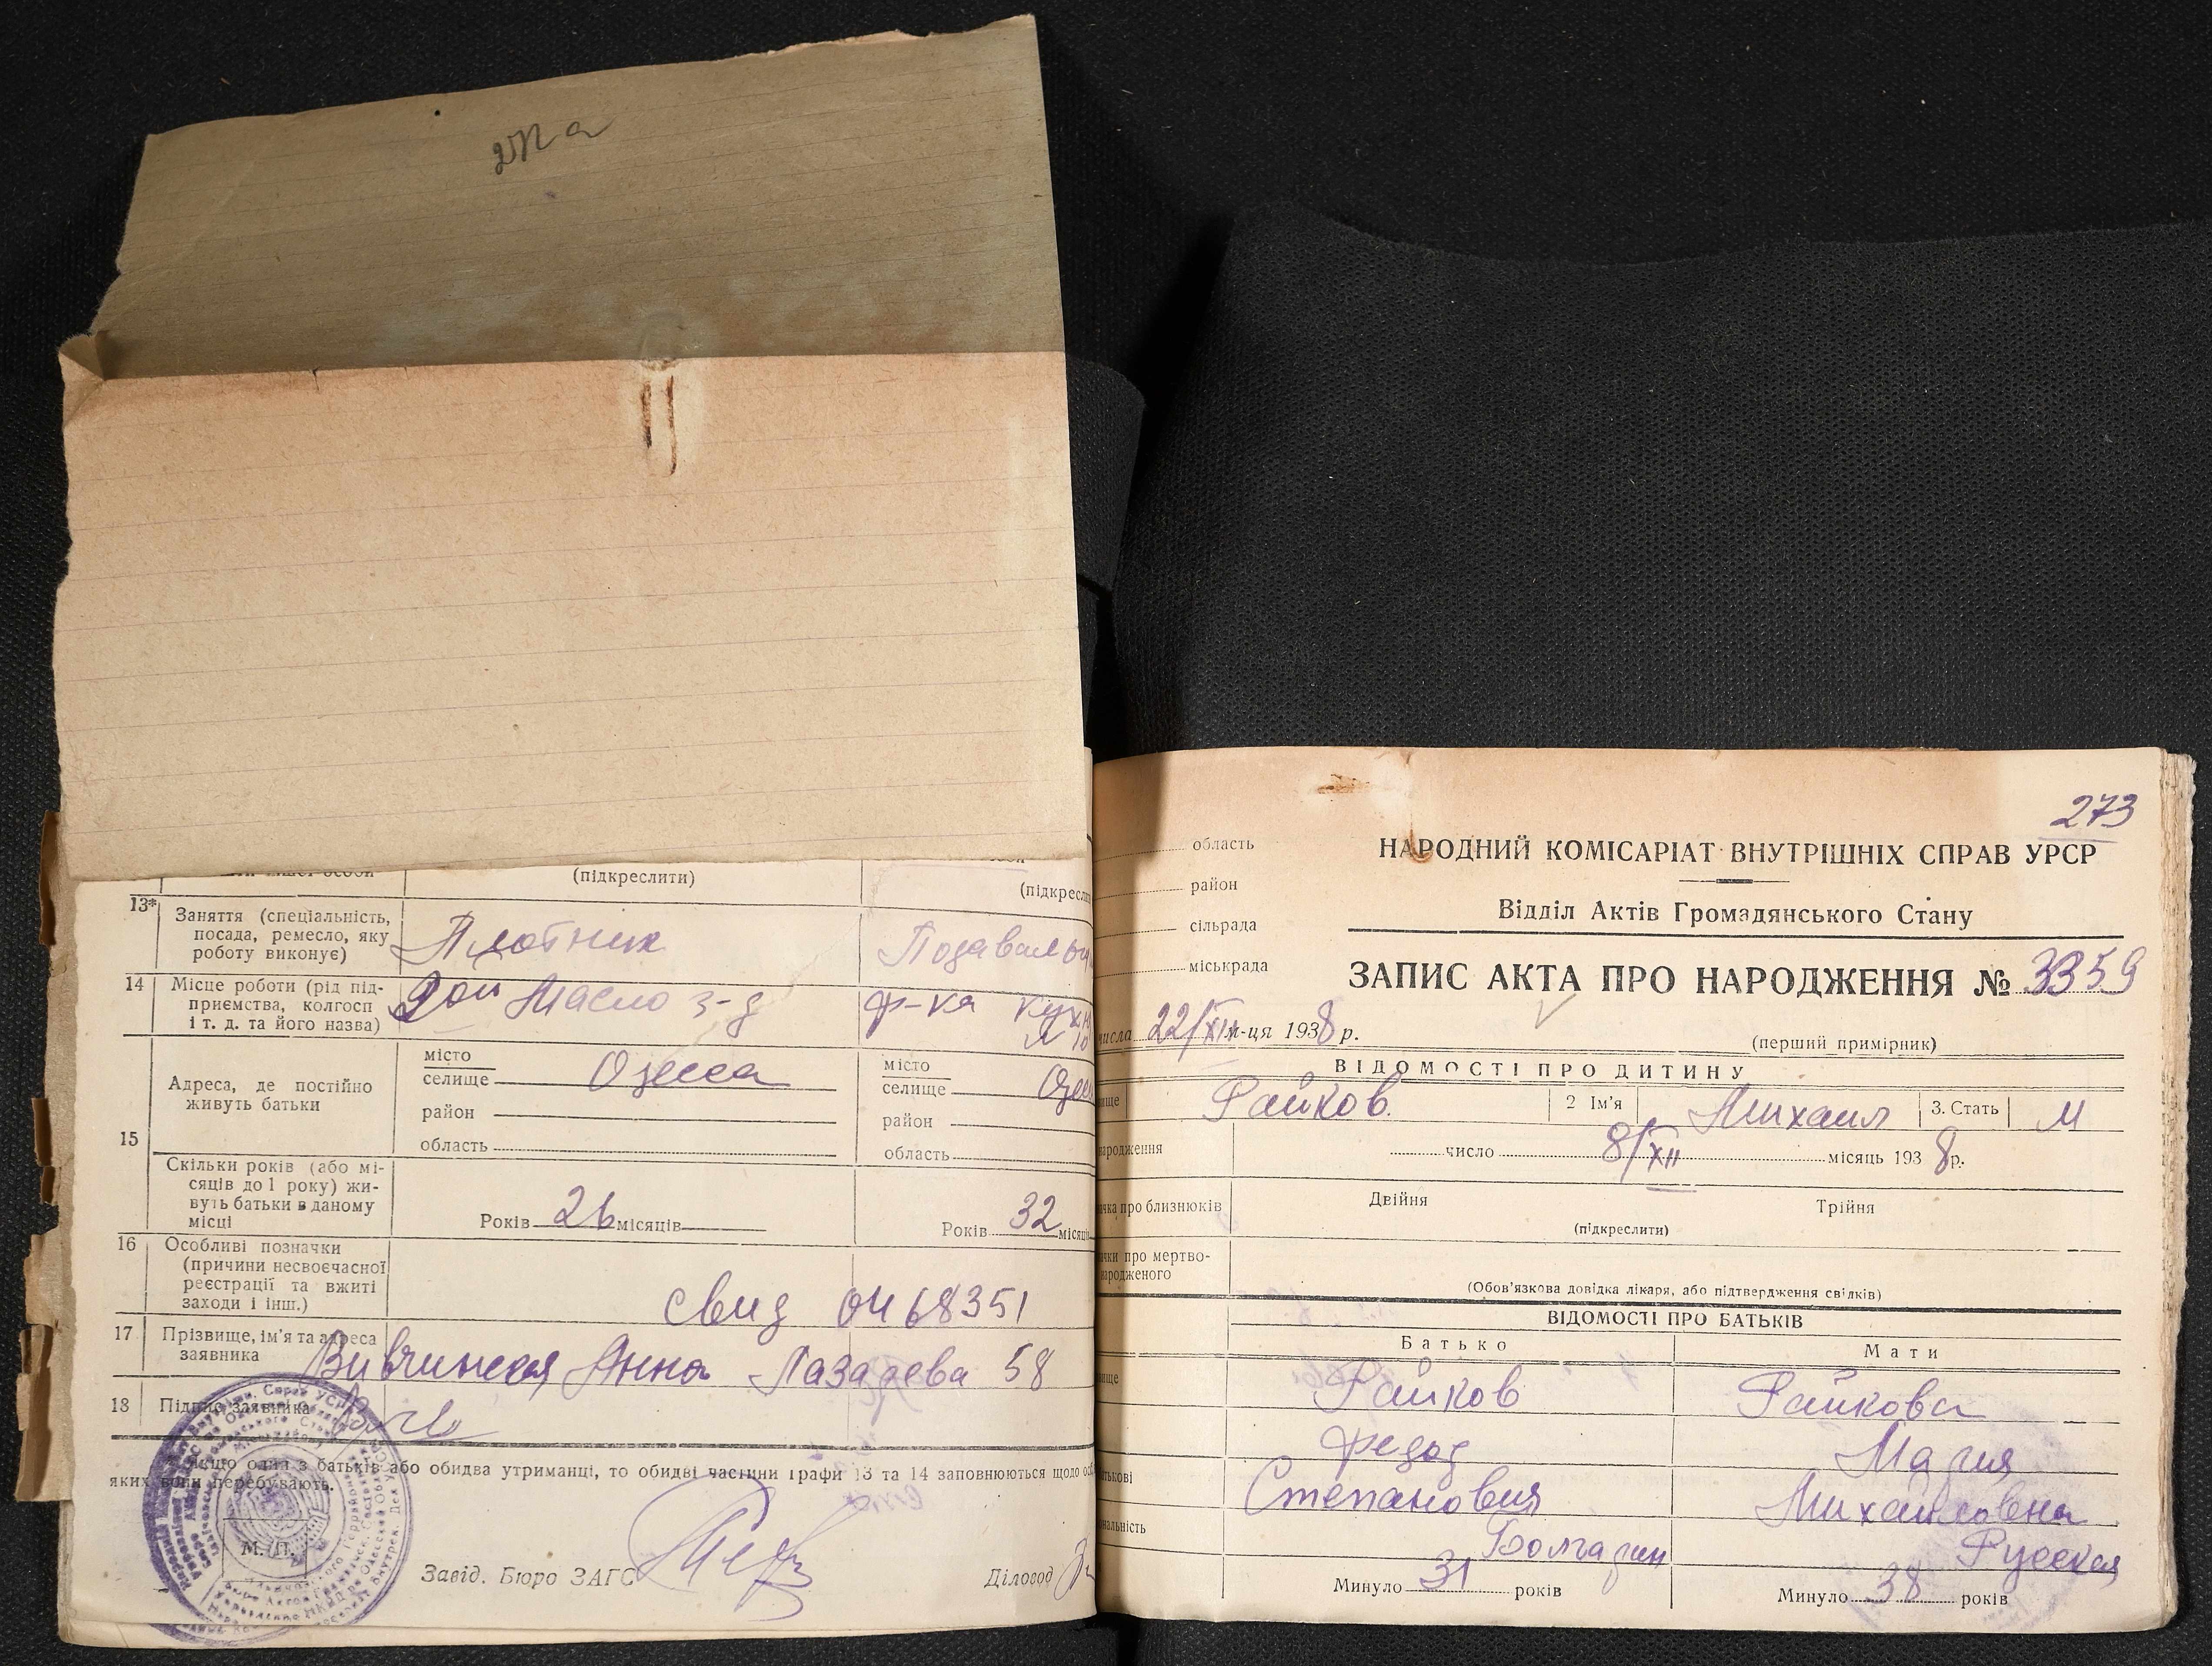 (підкреслити)
13* Заняття (спеціальність, посада, ремесло, яку роботу виконує)
Плотник
14 Місце роботи (рід підприємства, колгосп і т. д. та його назва)
Масло з-д
ф-ка
15 Адреса, де постійно живуть батьки
місто
селище Одесса
район
область
місто
селище
район
область
Скільки років (або місяців до 1 року) живуть батьки в даному місці
Років 26 місяців
Років 32
16 Особливі позначки (причини несвоєчасної реєстрації та вжиті заходи і інш.)
свид 0468351
17 Прізвище, ім'я та адреса заявника
Вивчинская Анна Лазарева 58
18 Підпис заявника
якщо один з батьків або обидва утриманці, то обидві частини графи 13 та 14 заповнюються щодо
яких вони перебувають.
М. П.
Завід. Бюро ЗАГС
Діловод
273
область
район
сільрада
міськрада
НАРОДНИЙ КОМІСАРІАТ ВНУТРІШНІХ СПРАВ УРСР
Відділ Актів Громадянського Стану
ЗАПИС АКТА ПРО НАРОДЖЕННЯ № 3359
числа 22/XII м-ця 1938 р.
(перший примірник)
ВІДОМОСТІ ПРО ДИТИНУ
Райков
2 Ім'я Михаил
3. Стать М
число 8/XII місяць 1938 р.
про близнюків
Двійня
Трійня
(підкреслити)
про мертво-
народженого
(Обов'язкова довідка лікаря, або підтвердження свідків)
ВІДОМОСТІ ПРО БАТЬКІВ
Батько
Мати
Райков
Райкова
Федор
Мария
Степанович
Михайловна
Болгарин
Русская
Минуло 31 років
Минуло 38 років